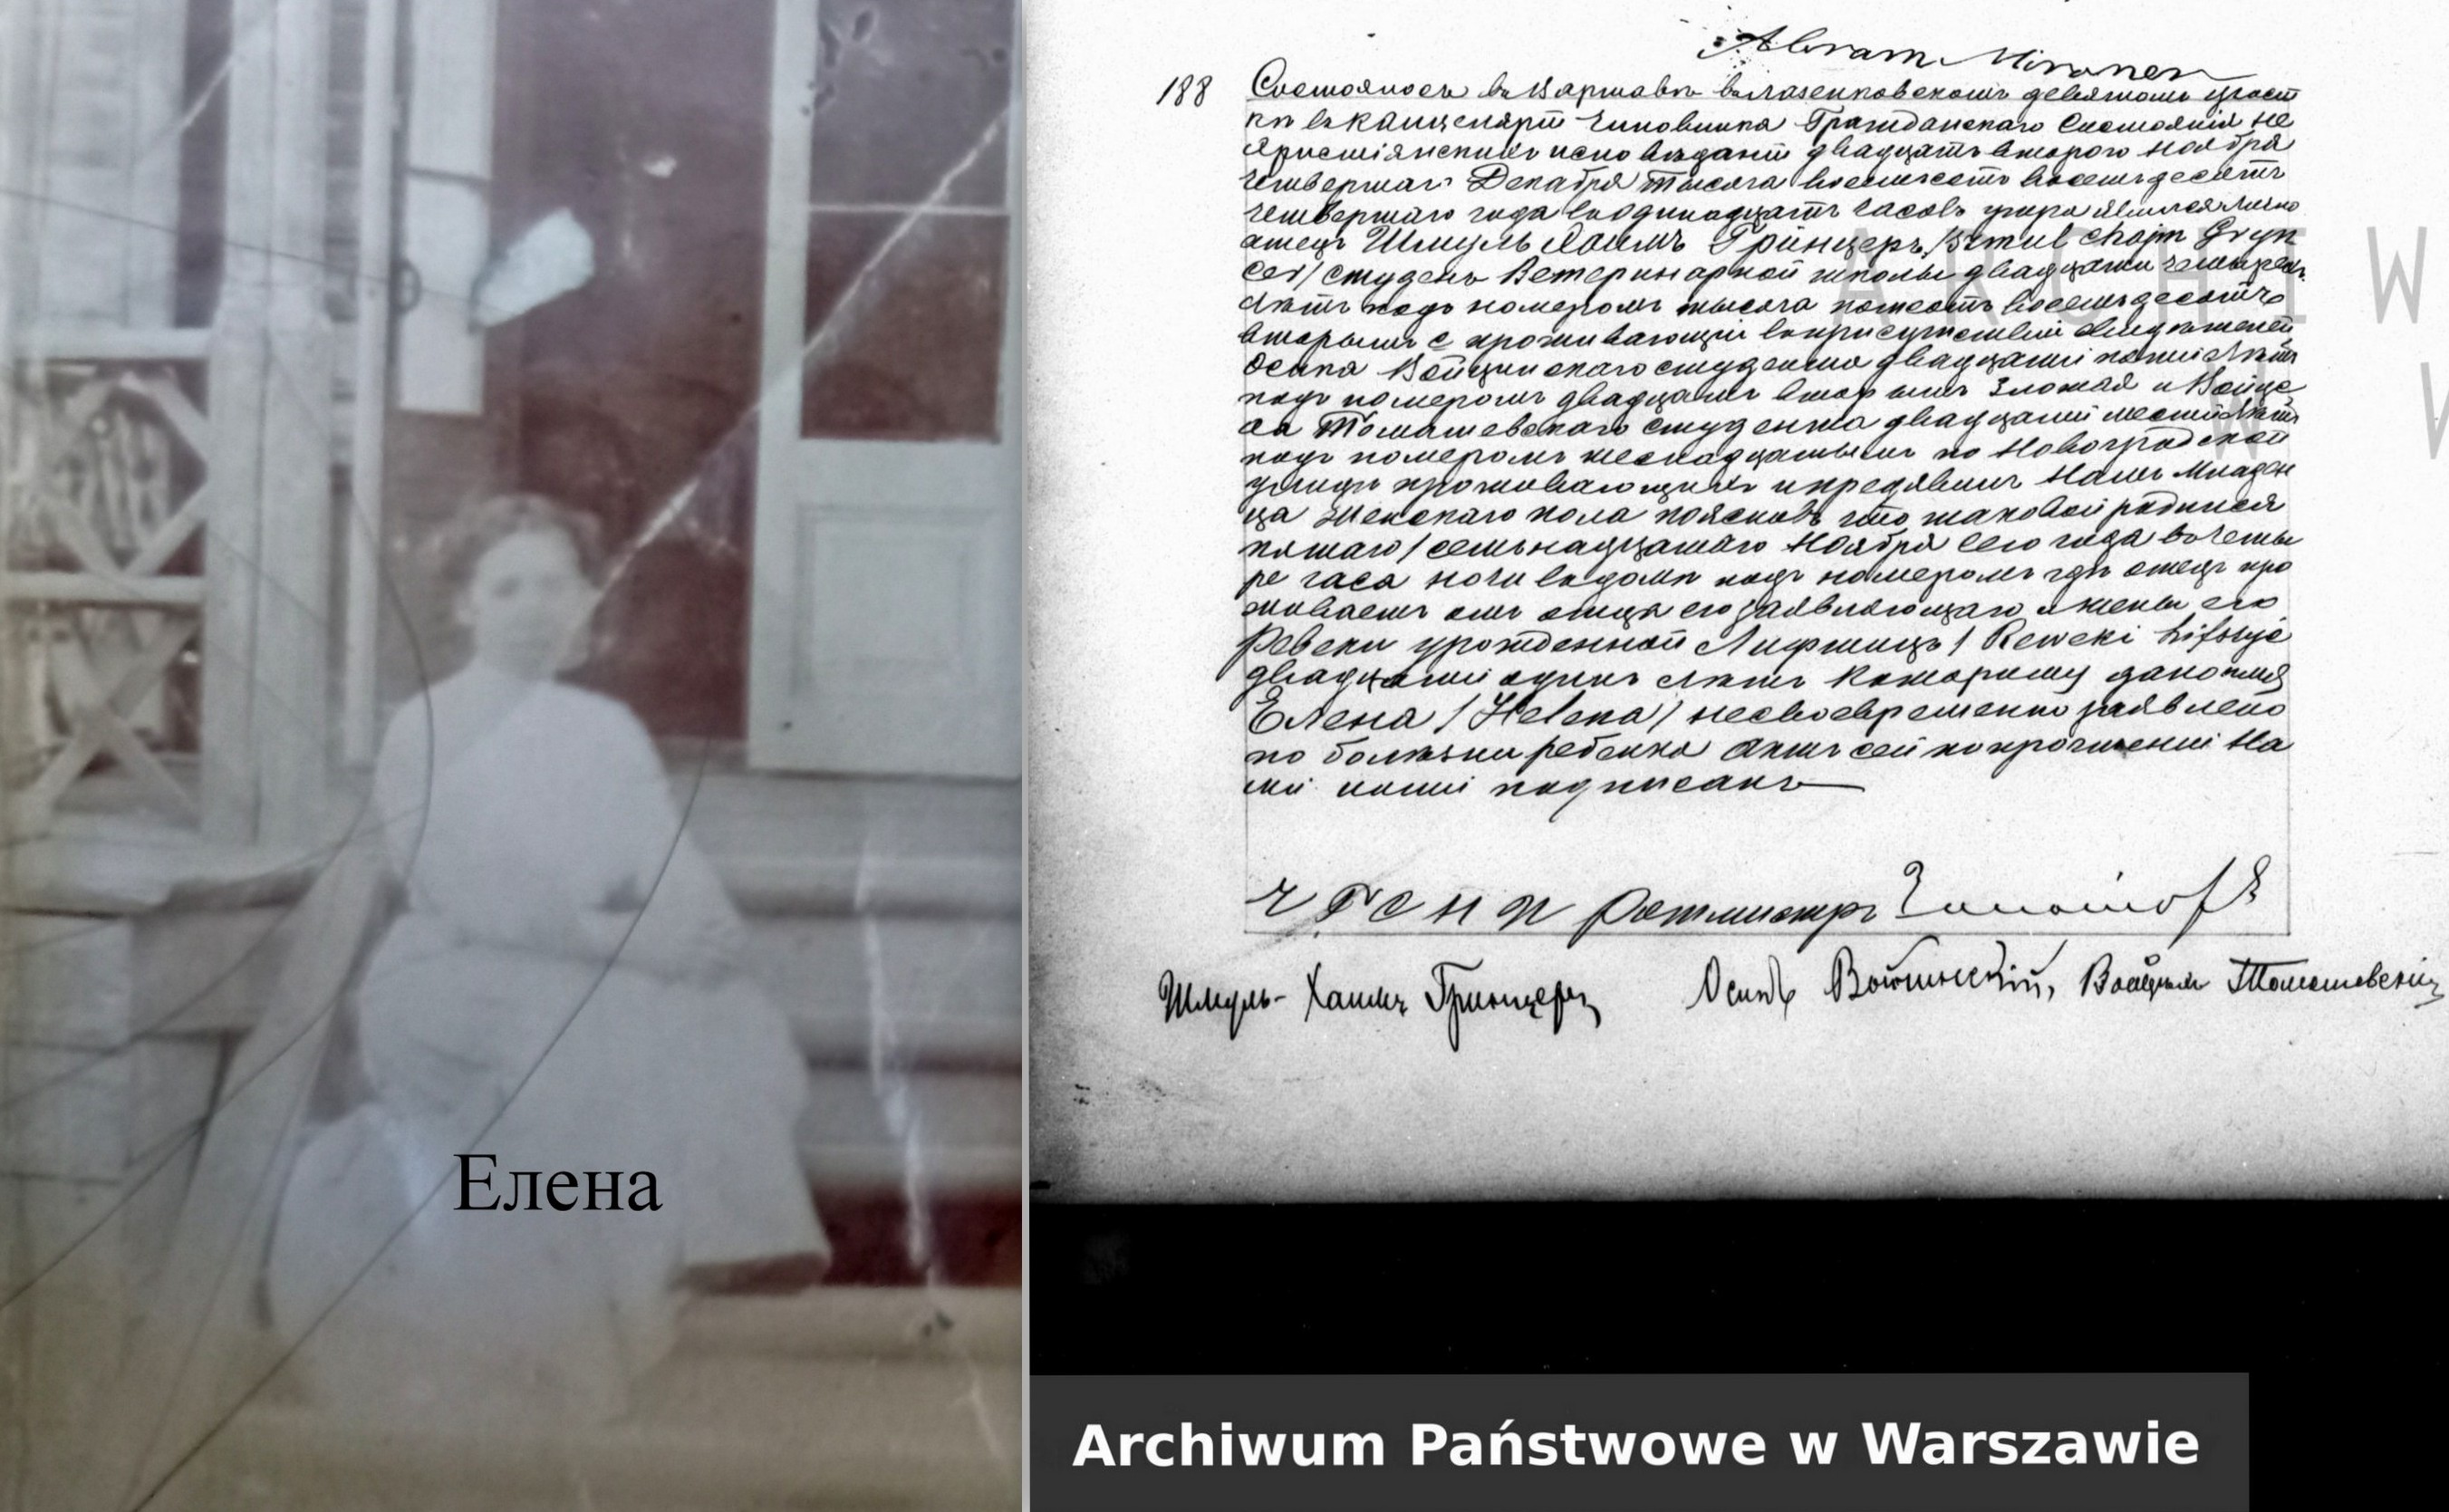 Елена
188
Состоялось въ Варшавѣ въ Лазенковскомъ девятомъ участ
кѣ въ канцеляріи Чиновника Гражданскаго Состоянія не
христіанскихъ исповѣданій двадцать втораго Ноября
четвертаго Декабря тысяча восемьсотъ восемьдесятъ
четвертаго года въ одинадцать часовъ утра явился лично
отецъ Шмуль Хаимъ Гринцеръ /Szmul Chajm Gryn
cer/ студенъ Ветеринарной школы двадцати четырехъ
лѣтъ подъ номеромъ тысяча пятсотъ восемьдесятъ
вторымъ с проживающій въ присутствіи свидѣтелей
Осипа Войцинскаго студента двадцати пяти лѣтъ
подъ номеромъ двадцать вторымъ Злотая и Войце
ха Томашевскаго студента двадцати шести лѣтъ
подъ номеромъ шеснадцатымъ по Новогродской
улицѣ проживающихъ и предъявилъ Намъ Младен
ца Женскаго пола пояснивъ что таковой родился
пятаго /семьнадцатаго Ноября сего года въ четы
ре часа ночи въ домѣ подъ номеромъ гдѣ отецъ про
живаетъ отъ отца его заявляющаго и жены его
Ревеки урожденной Лифшицъ / Reweki Lifszyc
двадцати одинъ лѣтъ которому дано имя
Елена / Helena / несвоевременно заявлено
по болѣзни ребенка Актъ сей по прочтеніи На
ми ими подписанъ
Ч Г С Н И Ротмистръ
Шмуль-Хаимъ Гринцеръ Осипъ Войцинскій, Войцехъ Томашевскій
ARCHIWUM
W
Archiwum Państwowe w Warszawie